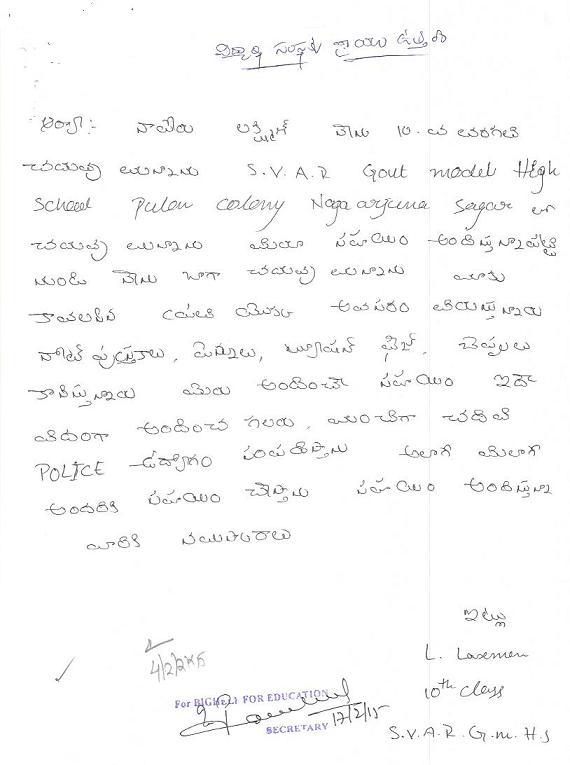 విద్యార్థి సంస్థకు వ్రాయు ఉత్తరం
నాపేరు లక్ష్మణ్ నేను 10.వ తరగతి
చదువు తున్నాను S.V.A.R Govt model High
School Pulon colony Nagarjuna Sagar లో
చదువు తున్నాను మీరు సహాయం అందిస్తున్నప్పటి
నుండి నేను బాగా చదువు తున్నాను మాకు
కావలసిన ప్రతి అవసరం తీరుస్తున్నారు
నోట్ పుస్తకాలు, పెన్నులు, ట్యూషన్ ఫీజ్, చెప్పులు
మీరు అందించే సహాయం ఇదే
విదంగా అందించ గలరు, మంచిగా చదివి
POLICE ఉద్యోగం సంపాదిస్తాను అలాగే మీలాగే
అందరికి సహాయం చేస్తాను సహాయం అందిస్తున్న
వారికి నమస్కారాలు
ఇట్లు
L. Laxman
10th Class
S.V.A.R.G.M.H.S
For BIGHELP FOR EDUCATION
17/2/15
SECRETARY